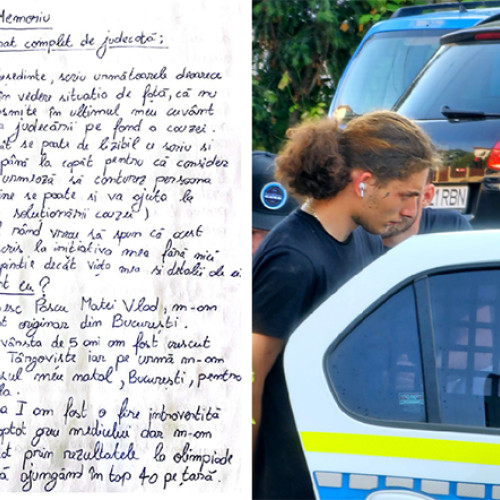 Memoriu
complet de judecată;
scriu următoarele deoarece
în vedere situația de față, că nu
în ultimul meu cuvânt
judecării pe fond a cauzei.
se poate de lizibil a scrie și
până la capăt pentru că consider
urmează să conturez persoana
se poate și va ajuta la
soluționării cauzei)
rând vreau să spun că acest
scris la inițiativa mea fără nici
decât viața mea și detalii de
eu?
Păscu Matei Vlad, m-am
originar din București.
vârsta de 5 ani am fost crescut
Târgoviște iar pe urmă m-am
meu natal, București, pentru
I am fost o fire introvertită
greu mediului dar m-am
prin rezultatele la olimpiade
ajungând în top 40 pe țară.
1 RBN